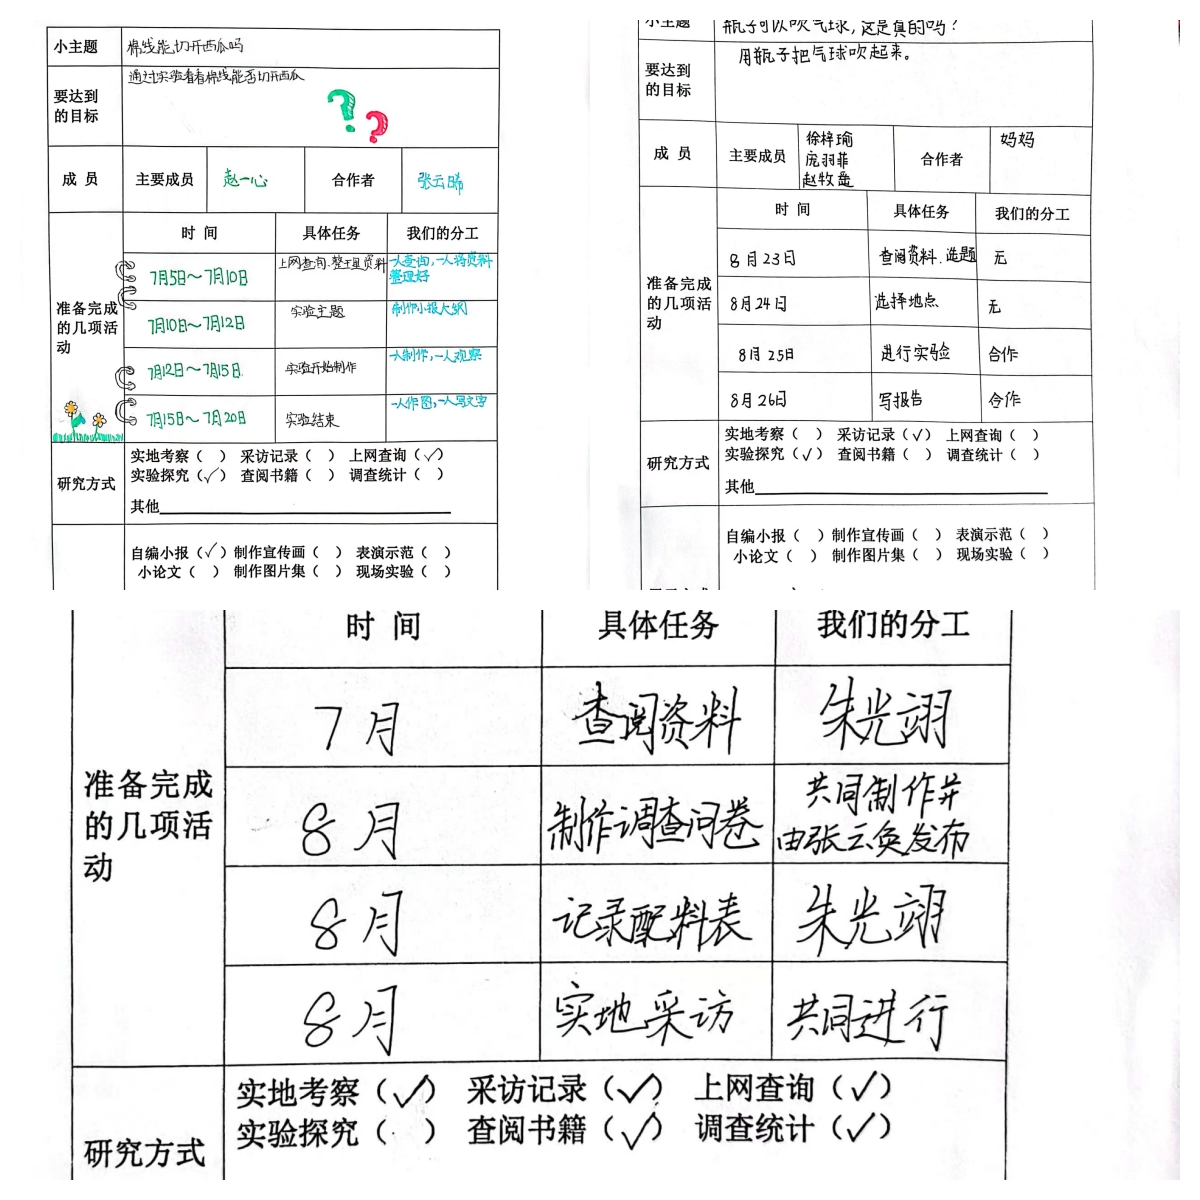 小主题 棉线能切开西瓜吗
要达到的目标 通过实验看看棉线能否切开西瓜
成 员 主要成员 赵一心 合作者 张云晞
时 间 具体任务 我们的分工
准备完成的几项活动
7月5日～7月10日 上网查询、整理资料 一人查询,一人将资料整理好
7月10日～7月12日 实验主题 制作小报大纲
7月12日～7月15日 实验开始制作 一人制作,一人观察
7月15日～7月20日 实验结束 一人作图,一人写文字
研究方式
实地考察（ ） 采访记录（ ） 上网查询（√）
实验探究（√） 查阅书籍（ ） 调查统计（ ）
其他
自编小报（√） 制作宣传画（ ） 表演示范（ ）
小论文（ ） 制作图片集（ ） 现场实验（ ）
小主题 瓶子可以吹气球,这是真的吗?
要达到的目标 用瓶子把气球吹起来。
成 员 主要成员 徐梓瑜
庞羽菲
赵牧
合作者 妈妈
时 间 具体任务 我们的分工
准备完成的几项活动
8月23日 查阅资料、选题 无
8月24日 选择地点 无
8月25日 进行实验 合作
8月26日 写报告 合作
研究方式
实地考察（ ） 采访记录（√） 上网查询（ ）
实验探究（√） 查阅书籍（ ） 调查统计（ ）
其他
自编小报（ ） 制作宣传画（ ） 表演示范（ ）
小论文（ ） 制作图片集（ ） 现场实验（ ）
时 间 具体任务 我们的分工
准备完成的几项活动
7月 查阅资料 朱光翊
8月 制作调查问卷 共同制作并由张云焕发布
8月 记录配料表 朱光翊
8月 实地采访 共同进行
研究方式
实地考察（√） 采访记录（√） 上网查询（√）
实验探究（ ） 查阅书籍（√） 调查统计（√）